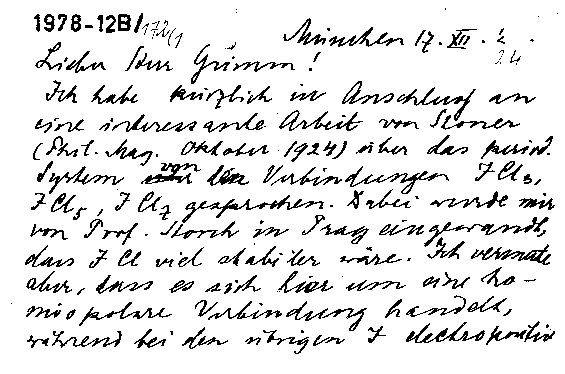 1978-12B/172(1
München 17. XII. 24.
Lieber Herr Grimm!
Ich habe kürzlich im Anschluss an
eine interessante Arbeit von Stoner
(Phil. Mag. Oktober 1924) über das period.
System von den Verbindungen JCl3,
JCl5, JCl7 gesprochen. Dabei wurde mir
von Prof. Storch in Prag eingewandt,
dass JCl viel stabiler wäre. Ich vermute
aber, dass es sich hier um eine ho-
möopolare Verbindung handelt,
während bei den übrigen J electropositiv